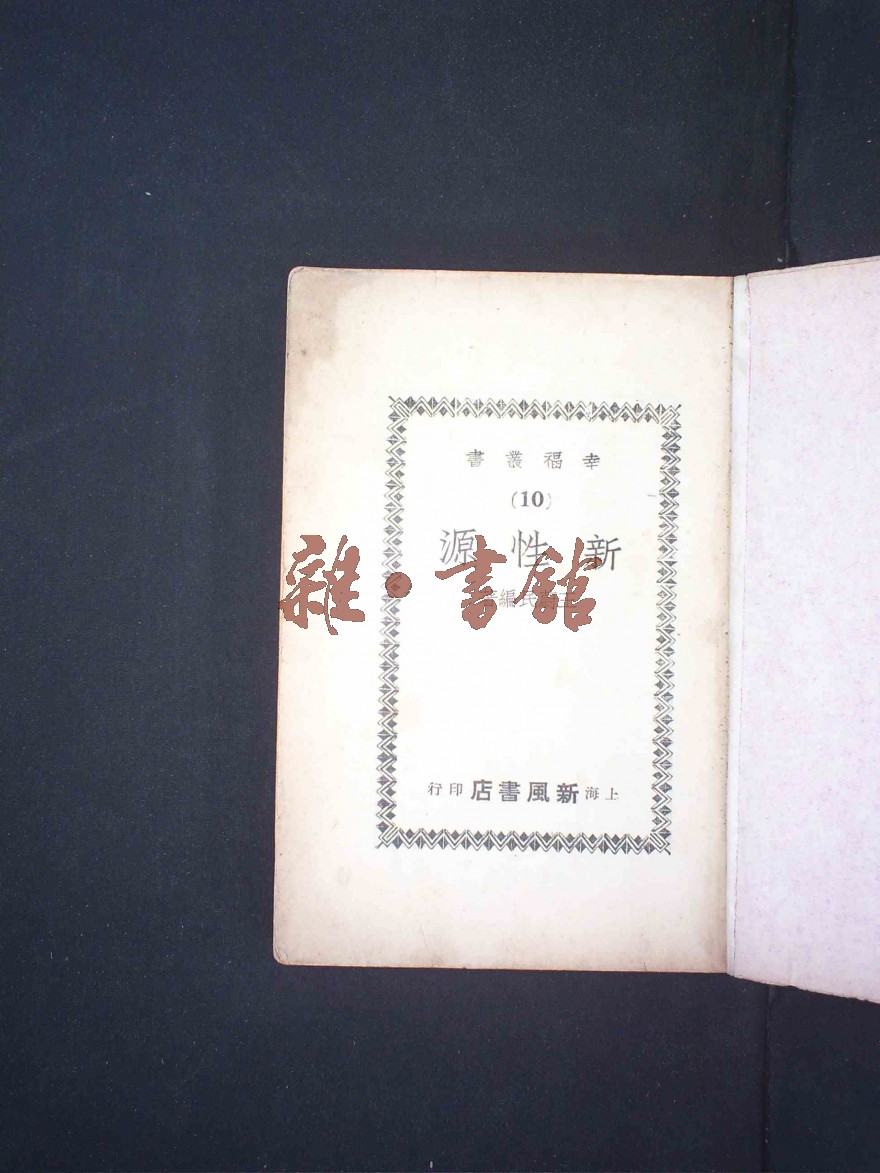 幸福叢書
(10)
新性源
民編
上海新風書店印行
雜·書館